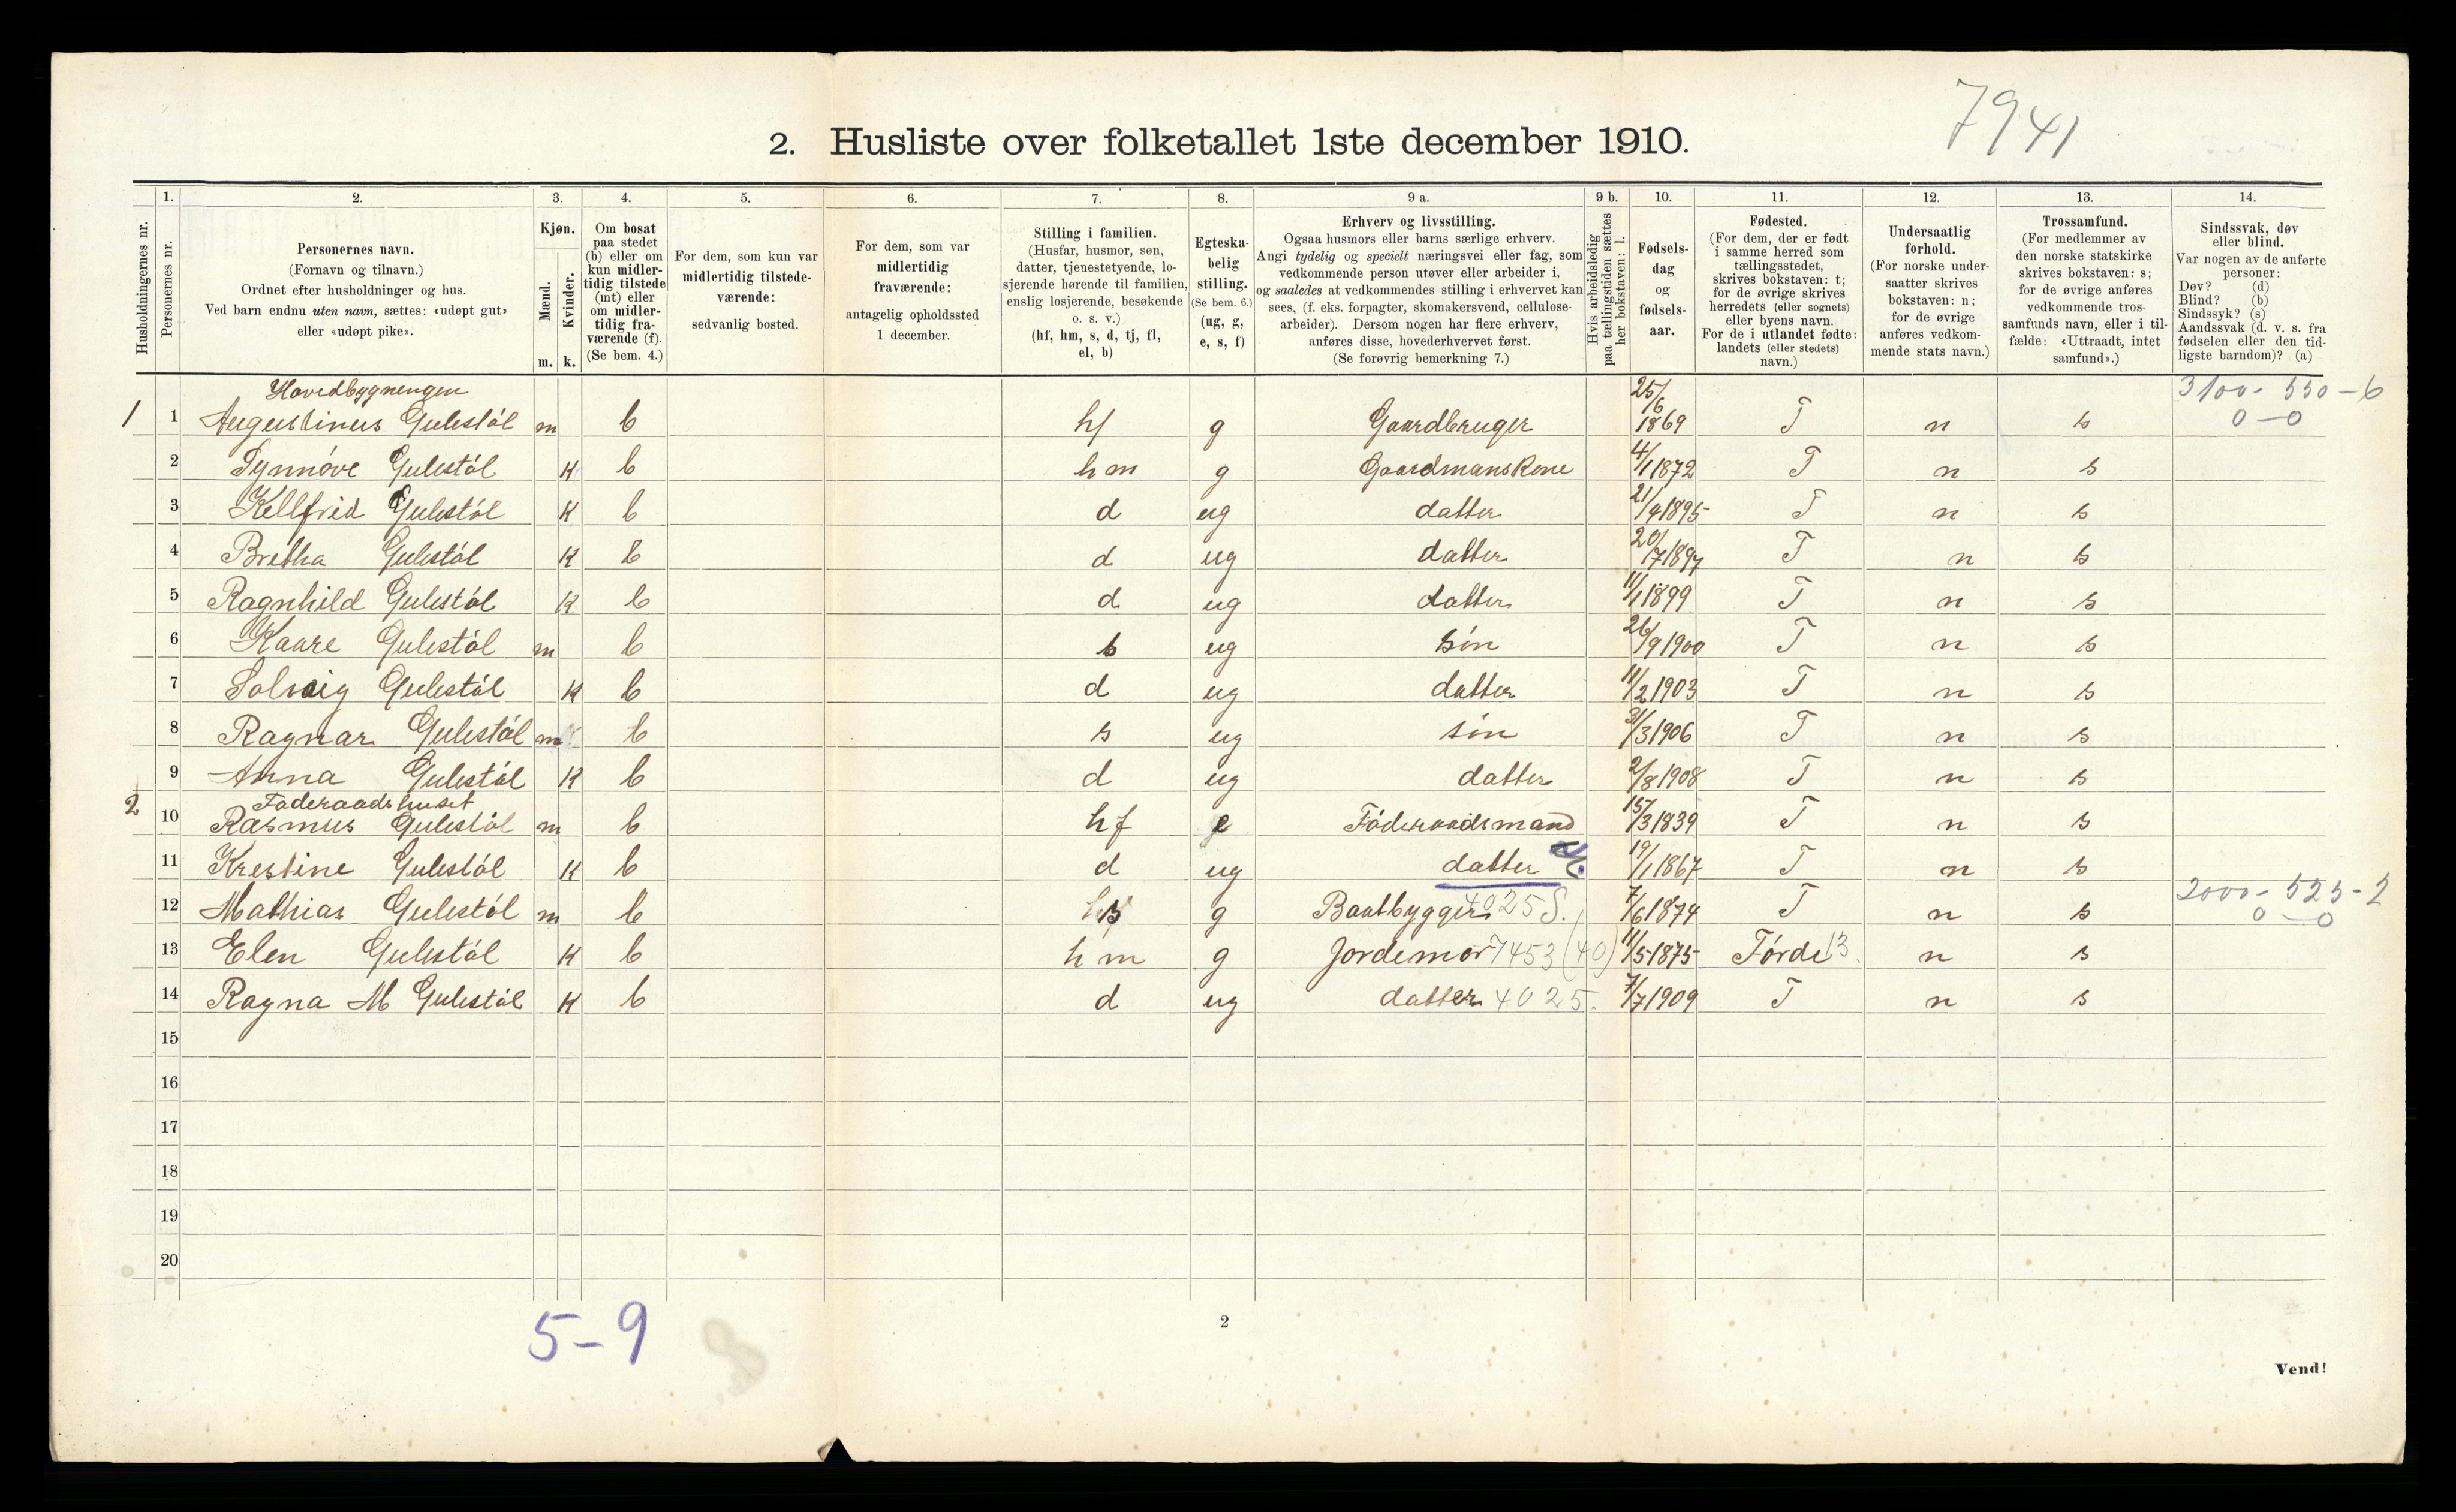 7941
2. Husliste over folketallet 1ste december 1910.
Husholdningernes nr.
1.
Personernes nr.
2.
Personernes navn.
(Fornavn og tilnavn.)
Ordnet efter husholdninger og hus.
Ved barn endnu uten navn, sættes: «udøpt gut»
eller «udøpt pike».
3.
Kjøn.
Mænd.
m.
Kvinder.
k.
4.
Om bosat
paa stedet
(b) eller om
kun midler-
tidig tilstede
(mt) eller
om midler-
tidig fra-
værende (f).
(Se bem. 4.)
5.
For dem, som kun var
midlertidig tilstede-
værende:
sedvanlig bosted.
6.
For dem, som var
midlertidig
fraværende:
antagelig opholdssted
1 december.
7.
Stilling i familien.
(Husfar, husmor, søn,
datter, tjenestetyende, lo-
sjerende hørende til familien,
enslig losjerende, besøkende
o. s. v.)
(hf, hm, s, d, tj, fl,
el, b)
8.
Egteska-
belig
stilling.
(Se bem. 6.)
(ug, g,
e, s, f)
9 a.
Erhverv og livsstilling.
Ogsaa husmors eller barns særlige erhverv.
Angi tydelig og specielt næringsvei eller fag, som
vedkommende person utøver eller arbeider i,
og saaledes at vedkommendes stilling i erhvervet kan
sees, (f. eks. forpagter, skomakersvend, cellulose-
arbeider). Dersom nogen har flere erhverv,
anføres disse, hovederhvervet først.
(Se forøvrig bemerkning 7.)
9 b.
Hvis arbeidsledig
paa tællingstiden sættes
her bokstaven: l.
10.
Fødsels-
dag
og
fødsels-
aar.
11.
Fødested.
(For dem, der er født
i samme herred som
tællingsstedet,
skrives bokstaven: t;
for de øvrige skrives
herredets (eller sognets)
eller byens navn.
For de i utlandet fødte:
landets (eller stedets)
navn.)
12.
Undersaatlig
forhold.
(For norske under-
saatter skrives
bokstaven: n;
for de øvrige
anføres vedkom-
mende stats navn.)
13.
Trossamfund.
(For medlemmer av
den norske statskirke
skrives bokstaven: s;
for de øvrige anføres
vedkommende tros-
samfunds navn, eller i til-
fælde: «Uttraadt, intet
samfund».)
14.
Sindssvak, døv
eller blind.
Var nogen av de anførte
personer:
Døv? (d)
Blind? (b)
Sindssyk? (s)
Aandssvak (d. v. s. fra
fødselen eller den tid-
ligste barndom)? (a)
Hovedbygnengen
3100 - 550 - 6
0 - 0
1 1 Augustinus Gulestøl m b hf g Gaardbruger 25/6 1869 T n s
2 Synnøve Gulestøl K b hm g Gaardmanskone 4/1 1872 T n s
3 Kellfrid Gulestøl K b d ug datter 21/4 1895 T n s
4 Bretha Gulestøl K b d ug datter 20/7 1897 T n s
5 Ragnhild Gulestøl K b d ug datter 11/1 1899 T n s
6 Kaare Gulestøl m b s ug søn 26/9 1900 T n s
7 Solveig Gulestøl K b d ug datter 11/2 1903 T n s
8 Ragnar Gulestøl m b s ug søn 31/3 1906 T n s
9 Anna Gulestøl K b d ug datter 2/8 1908 T n s
Føderaadshuset
2 10 Rasmus Gulestøl m b hf e Føderaadsmand 15/3 1839 T n s
11 Krestine Gulestøl K b d ug datter 19/1 1867 T n s
2000 - 525 - 2
0 - 0
12 Mathias Gulestøl m b s g Baatbygger 4025 S. 7/6 1874 T n s
13 Elen Gulestøl K b hm g Jordemor 7453 (40) 11/5 1875 Førde 13. n s
14 Ragna M Gulestøl K b d ug datter 4025. 7/7 1909 T n s
15
16
17
18
19
20
5-9
2
Vend!